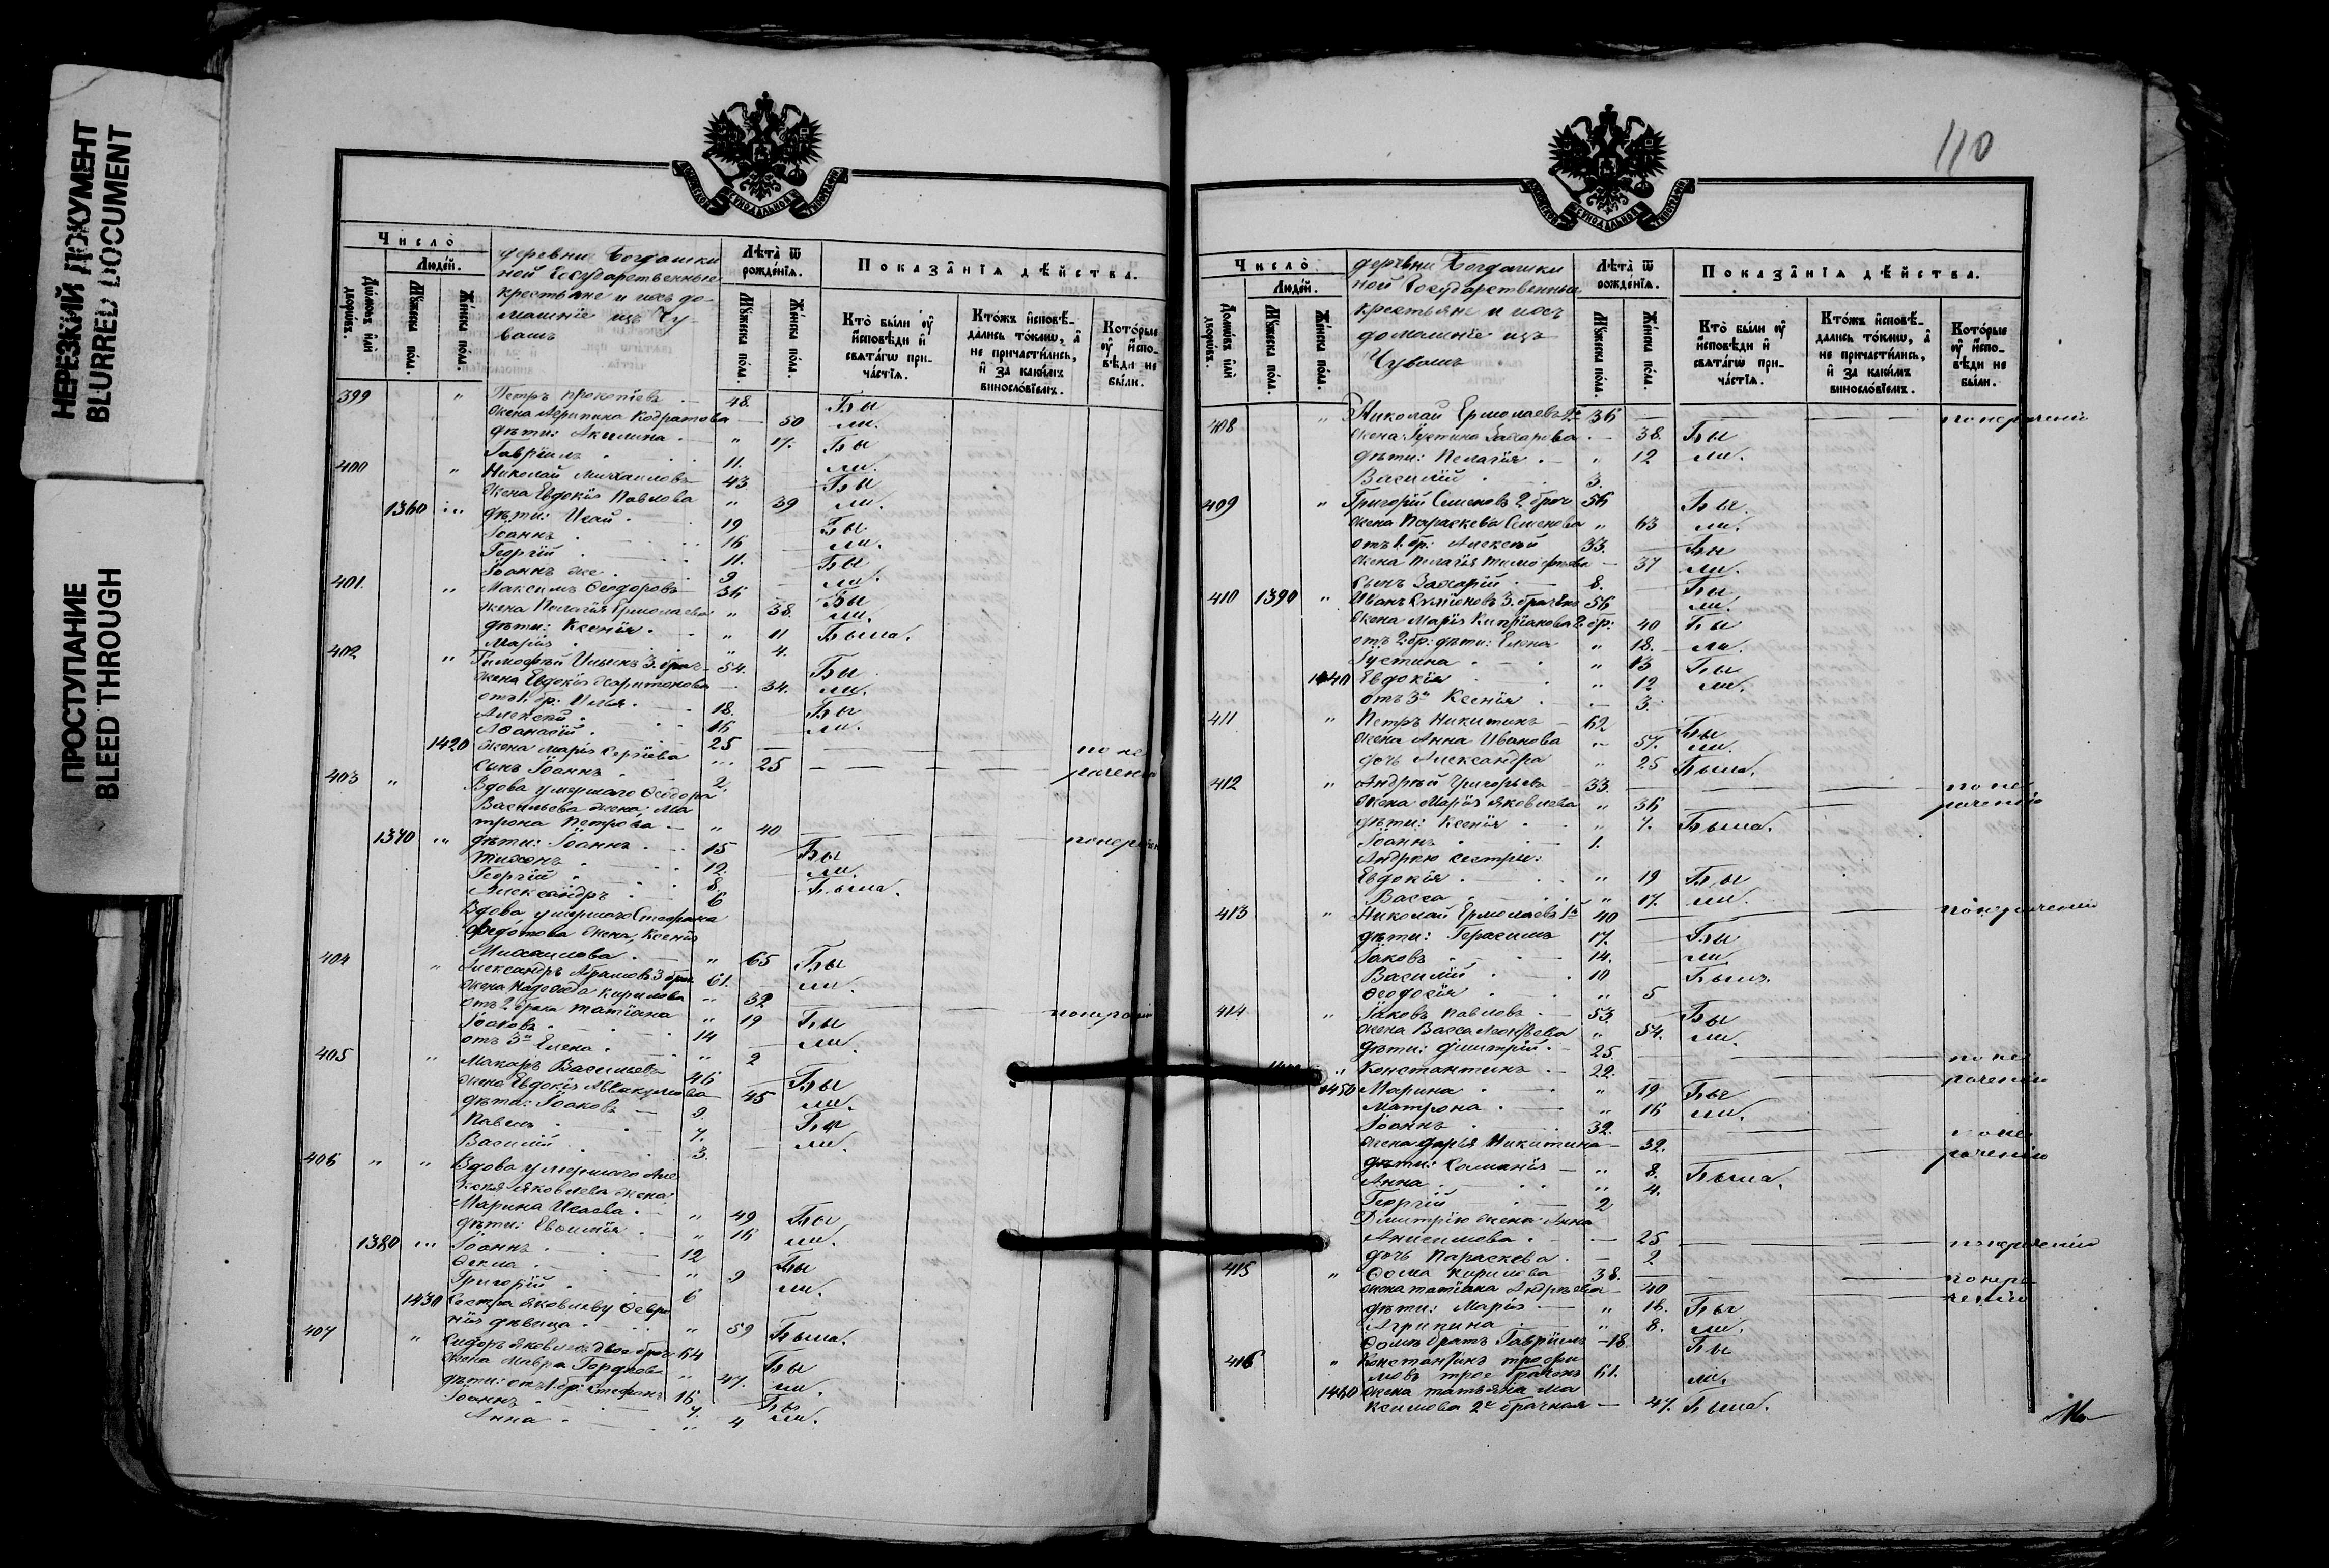 НЕРЕЗКИЙ ДОКУМЕНТ
BLURRED DOCUMENT
ПРОСТУПАНИЕ
BLEED THROUGH
Число̀
Людей.
Домѡвъ илѝ дворѡвъ.
Мꙋжеска пола.
Женска пола.
деревни Богдашки
ной Государственные
крестьяне и ихъ до-
машніе изъ Чу-
вашъ
Лѣта̀ ѿ рожденїѧ.
Мꙋжеска пола.
Женска пола.
Показа̂нїѧ дѣйства.
Кто̀ были ᲂу҆ исповѣди и свѧтагѡ причастїѧ.
Ктожъ исповѣдались токмѡ, а не причастились, и за какимъ винословїемъ.
Которые ᲂу҆ исповѣди не были.
399 " Петръ Прокопіевъ 48. Бы
жена Агрипина Кодратова 50 ли.
дѣти: Акилина " 17. Бы
Гавріилъ 11. ли.
400 " Николай Михаиловъ 43 Бы
жена Евдокія Павлова " 39 ли.
1360 дѣти: Исай 19 Бы
Іоаннъ 16 ли.
Георгій 11. Бы
Іоаннъ же 9 ли.
401. " Максимъ Ѳеодоровъ 36 Бы
жена Пелагія Ермолаева " 38. ли.
дѣти: Ксенія " 11 Была.
Марія " 4.
402 " Тимофѣй Ильинъ 3. брач 54. Бы
жена Евдокія Харитонова 34. ли.
отъ 1. бр: Илья 18. Бы
Алексѣй 16 ли.
Аѳанасій 25
1420 жена Марія Сергіева 25 по не
сынъ Іоаннъ 2. раченію
403 " Вдова умершаго Ѳеодора
Васильева жена Ма
трона Петрова " 40
1370 дѣти: Іоаннъ 15 Бы
Тихонъ 12. ли.
Георгій 8. Была.
Александръ 6
Вдова умершаго Стефана
Федотова жена, Ксенія
Михаилова " 65 Бы
404 " Александръ Абрамовъ 3 брач 61. ли.
жена Надежда Кирилова " 32
отъ 2 брака Татіана " 19 Бы
Іаковъ 14 ли.
отъ 3го Елена " 2
405 " Макаръ Васильевъ 46 Бы
жена Евдокія Аввакумова 45 ли.
дѣти: Іаковъ 9. Бы
Павелъ 7. ли.
Василій 3.
406 " " Вдова умершаго Але
ксѣя Яковлева жена
Марина Исаева " 49 Бы
дѣти: Евѳимія " 16 ли.
1380 Іоаннъ 12 Бы
Ѳекла " 9 ли.
Григорій 6
1430 Сестра Яковлеву Февро
нія дѣвица " 59 Была.
407 " Сидоръ Яковлевъ двое брач 64 Бы
жена Мавра Гордѣева " 47. ли.
дѣти: отъ 1. бр: Стефанъ 16 Бы
Іоаннъ 7. ли.
Анна " 4
110
Число̀
Людей.
Домѡвъ илѝ дворѡвъ.
Мꙋжеска пола.
Женска пола.
деревни Богдашки
ной Государственные
крестьяне и ихъ
домашніе изъ
Чувашъ
Лѣта̀ ѿ рожденїѧ.
Мꙋжеска пола.
Женска пола.
Показа̂нїѧ дѣйства.
Кто̀ были ᲂу҆ исповѣди и свѧтагѡ причастїѧ.
Ктожъ исповѣдались токмѡ, а не причастились, и за какимъ винословїемъ.
Которые ᲂу҆ исповѣди не были.
408 " Николай Ермолаевъ 36 по нераченію
жена Іустина Захарова 38. Бы
дѣти: Пелагія " 12 ли.
Василій 3.
409 " Григорій Семеновъ 2 брач 56 Бы
жена Параскева Семенова " 63 ли.
отъ 1. бр: Алексѣй 33. Бы
жена Пелагія Тимофѣева 37 ли.
сынъ Захарій 8. Бы
410 1390 " Иванъ Симеоновъ 3. брачный 56 ли.
жена Марія Кипріанова 2. бр: 40 Бы
отъ 2. бр: дѣти: Елена " 18. ли.
Іустина " 13 Бы
1440 Евдокія " 12 ли.
отъ 3го Ксенія 3.
411 " Петръ Никитинъ 62 Бы
жена Анна Иванова " 57. ли.
дочь Александра " 25 Была.
412 " Андрѣй Григорьевъ 33. по не
жена Марія Яковлева " 36 раченію
дѣти: Ксенія " 7. Была.
Іоаннъ 1.
Андрею сестры:
Евдокія " 19 Бы
Васса " 17. ли.
413 " Николай Ермолаевъ 1й 40 по нераченію
дѣти: Герасимъ 17. Бы
Іаковъ 14. ли
Василій 10 Былъ.
Ѳеодосія " 5
414 " Іаковъ Павловъ 53. Бы
жена Васса " 54. ли.
дѣти: Дмитрій 25. по не
" Константинъ 22. раченію
1450 Марина " 19 Бы
Матрона " 16 ли.
Іоаннъ 32. по не
жена Дарья Никитина 32. раченію
дѣти: " 8. Была.
Анна " 4.
Георгій 2
Димитрію жена Анна
Анисимова 25 по нераченію
дочь Параскева 2
415 " Ѳома Кириловъ 38. по нера
жена Татіана Андрѣева 40 ченію
дѣти: Марія " 16. Бы
Агрипина " 8. ли.
Ѳомѣ братъ Гавріилъ 18 Бы
416 " Константинъ Трофи
мовъ трое брачный 61. ли.
1460 жена Татьяна Ма
ксимова 2я брачная 47. Была.